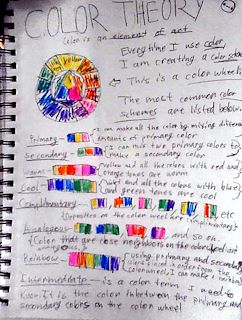 COLOR THEORY
Color is an element of art
Everytime I use color
I am creating a color
This is a color wheel
yellow
The most common color
schemes are listed below
I can make all the color by mixing different
Primary amounts of primary color
I can mix two primary colors to
Secondary make a secondary color
Warm and all the colors with red and
orange tones are warm
Cool and all the colors with blue
and green tones are cool
Complimentary etc
(Opposites on the color wheel are complimentary)
Analogous and so on
(Color that are close neighbors on the color wheel are
analogous)
Rainbow (using primary and secondary
colors placed in order from the
color wheel, I can make a rainbow)
Intermediate - is a color term I need to
Know. It is the color inbetween the primary and
secondary colors on the color wheel